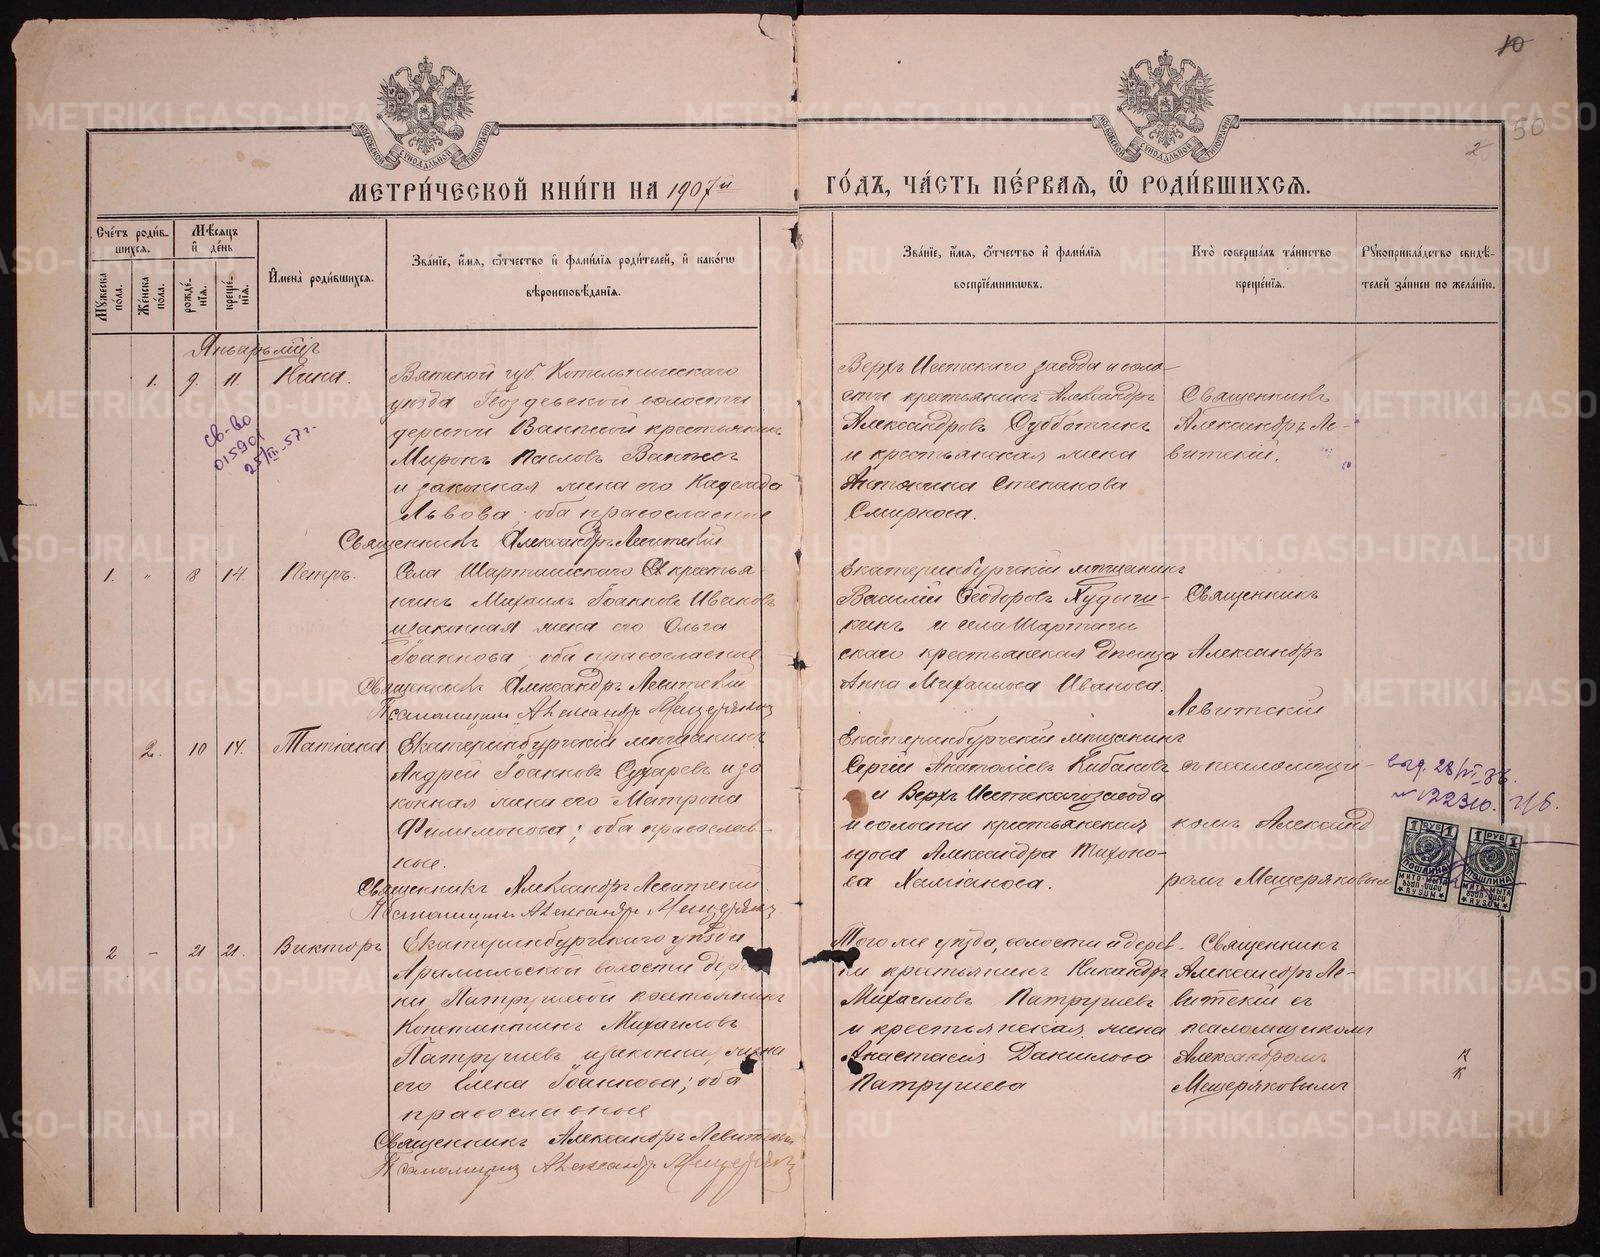 10
50
2
МЕТРИ́ЧЕСКОЙ КНИ́ГИ НА 1907й
ГО́ДЪ, ЧА́СТЬ ПЕ́РВАЯ, Ѿ РОДИ́ВШИХСЯ.
Сче́тъ роди́в-
шихся.
Мѣ́сяцъ
и҆ де́нь
Мꙋ́жеска по́ла.
Же́нска по́ла.
рожде́-
нїя.
креще́-
нїя.
И҆мена̀ роди́вшихся.
Зва́нїе, и҆́мя, ѻ҆́тчество и҆ фами́лїя роди́телей, и҆ како́гѡ
вѣроисповѣ́данїя.
Зва́нїе, и҆́мя, ѻ҆́тчество и҆ фами́лїя
воспрїе́мникѡвъ.
Кто̀ соверша́лъ та́инство
креще́нїя.
Рꙋкоприкла́дство свидѣ́-
телей за́писи по жела́нїю.
Январь мцъ
1. 9. 11. Нина.
Вятской губ. Котельническаго
уѣзда Гвоздевской волости
деревни Ванинской крестьянинъ
Миронъ Павловъ
и законная жена его
Львова, оба православные
Священникъ Александръ Левитскій
Верхъ Исетскаго завода и воло-
сти крестьянинъ Александръ
Александровъ Субботинъ
и крестьянская жена
Антонина Степанова
Смирнова.
Священникъ
Александръ Ле-
витскій.
св-во
015901
25/III-57г.
1. " 8 14. Петръ.
Села Шарташскаго крестья-
нинъ Михаилъ Іоанновъ Ивановъ
и законная жена его Ольга
Іоаннова, оба православные
Священникъ Александръ Левитскій
Псаломщикъ Александръ Мещеряковъ
Екатеринбургскій мѣщанинъ
Василій Ѳеодоровъ
кинъ и села Шарташ
скаго крестьянская дѣвица
Анна Михаилова Иванова.
Священникъ
Александръ
Левитскій
2. 10 14. Татіана
Екатеринбургскій мѣщанинъ
Андрей Іоанновъ Сухаревъ и за
конная жена его Матрона
Филимонова; оба православ-
ные.
Священникъ Александръ Левитскій
Псаломщикъ Александръ Мещеряковъ
Екатеринбургскій мѣщанинъ
Сергій Анатоліевъ Кибановъ
и Верхъ Исетскаго завода
и волости крестьянская
вдова Александра Тихоно-
ва Хамианова.
съ псаломщи-
комъ Александ
ромъ Мещеряковымъ
выд. 28/VI-36.
№ 022310.
1 РУБ 1
ПОШЛИНА
МИТО-МЫТА
RYSUM
1 РУБ 1
ПОШЛИНА
МИТО-МЫТА
RYSUM
2 – 21 21. Викторъ
Екатеринбургскаго уѣзда
Арамильской волости дерев
ни Патрушевой крестьянинъ
Константинъ Михаиловъ
Патрушевъ и законная жена
его Елена Іоаннова; оба
православные
Священникъ Александръ Левитскій
Псаломщикъ Александръ Мещеряковъ
Того же уѣзда, волости и дерев-
ни крестьянинъ Никандръ
Михаиловъ Патрушевъ
и крестьянская жена
Анастасія Данилова
Патрушева
Священникъ
Александръ Ле-
витскій съ
псаломщикомъ
Александромъ
Мещеряковымъ